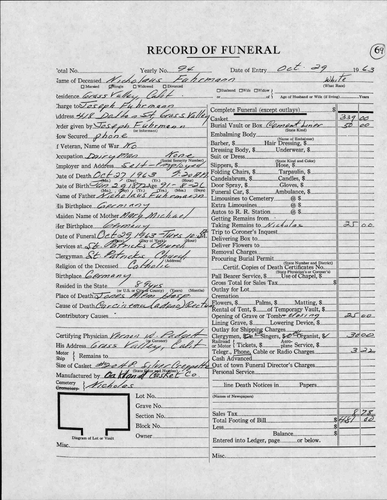 RECORD OF FUNERAL
69
Total No. Yearly No. 94 Date of Entry Oct. 29 1963
Name of Deceased Nicholaus Fuhrmann White
Married Single Widowed Divorced Husband Wife Widow (What Race)
Residence Grass Valley, Calif. or Age of Husband or Wife (if living) Years
Charge to Joseph Fuhrmann
Address 418 Dalton St, Grass Valley
Order given by Joseph Fuhrmann
How Secured phone
If Veteran, Name of War No
Occupation Dairyman None
(Social Security Number)
Employer and Address Self-employee
Date of Death Oct 27 1963 7:20 A.M.
Date of Birth Jan 2 1872 Age 91-8-26
Name of Father Nicholaus Fuhrmann
His Birthplace Germany
Maiden Name of Mother Mary Michael
Her Birthplace Germany
Date of Funeral Oct 29 1963 Tues. 10
Services at St. Patricks Church
Clergyman St Patricks Church
Religion of the Deceased Catholic
Birthplace Germany
Resided in the State 89 yrs
Place of Death Jones Mem Hosp
Cause of Death Carcinoma
Contributory Causes
Certifying Physician Vernon W. Padgett
His Address Grass Valley, Calif
Motor Ship Remains to
Size of Casket Silver
Manufactured by Oakland Casket Co
Cemetery
Crematory Nicholas
Lot No.
Grave No.
Section No.
Block No.
Owner
Diagram of Lot or Vault
Misc.
Complete Funeral (except outlays) $
Casket 339 00
Burial Vault or Box Cement liner 50 00
(State Kind)
Embalming Body
(Name of Embalmer)
Barber, $ Hair Dressing, $
Dressing Body, $ Underwear, $
Suit or Dress
(State Kind and Color)
Slippers, $ Hose, $
Folding Chairs, $ Tarpaulin, $
Candelabrum, $ Candles, $
Door Spray, $ Gloves, $
Funeral Car, $ Ambulance, $
Limousines to Cemetery @ $
Extra Limousines @ $
Autos to R. R. Station @ $
Getting Remains from
Taking Remains to Nicholas 25 00
Trip to Coroner's Inquest
Delivering Box to
Deliver Flowers to
Removal Charges
Procuring Burial Permit
(State Number and District)
Certif. Copies of Death Certificates No.
Pall Bearer Service, $ Use of Chapel, $
Gross Total for Sales Tax $
Outlay for Lot
Cremation
Flowers, $ Palms, $ Matting, $
Rental of Tent, $ of Temporary Vault, $
Opening of Grave or Tomb 25 00
Lining Grave, $ Lowering Device, $
Outlay for Shipping Charges
Clergyman, $ Singers, $ Organist, $ 30 00
Railroad or Motor $ Tickets, $ Aeroplane Service, $
Telegr., Phone, Cable or Radio Charges 3 22
Cash Advanced
Out of town Funeral Director's Charges
Personal Service
line Death Notices in Papers
(Names of Newspapers)
Sales Tax $ 8 78
Total Footing of Bill $ 481 00
Less $
Balance $
Entered into Ledger, page or below.
Misc.